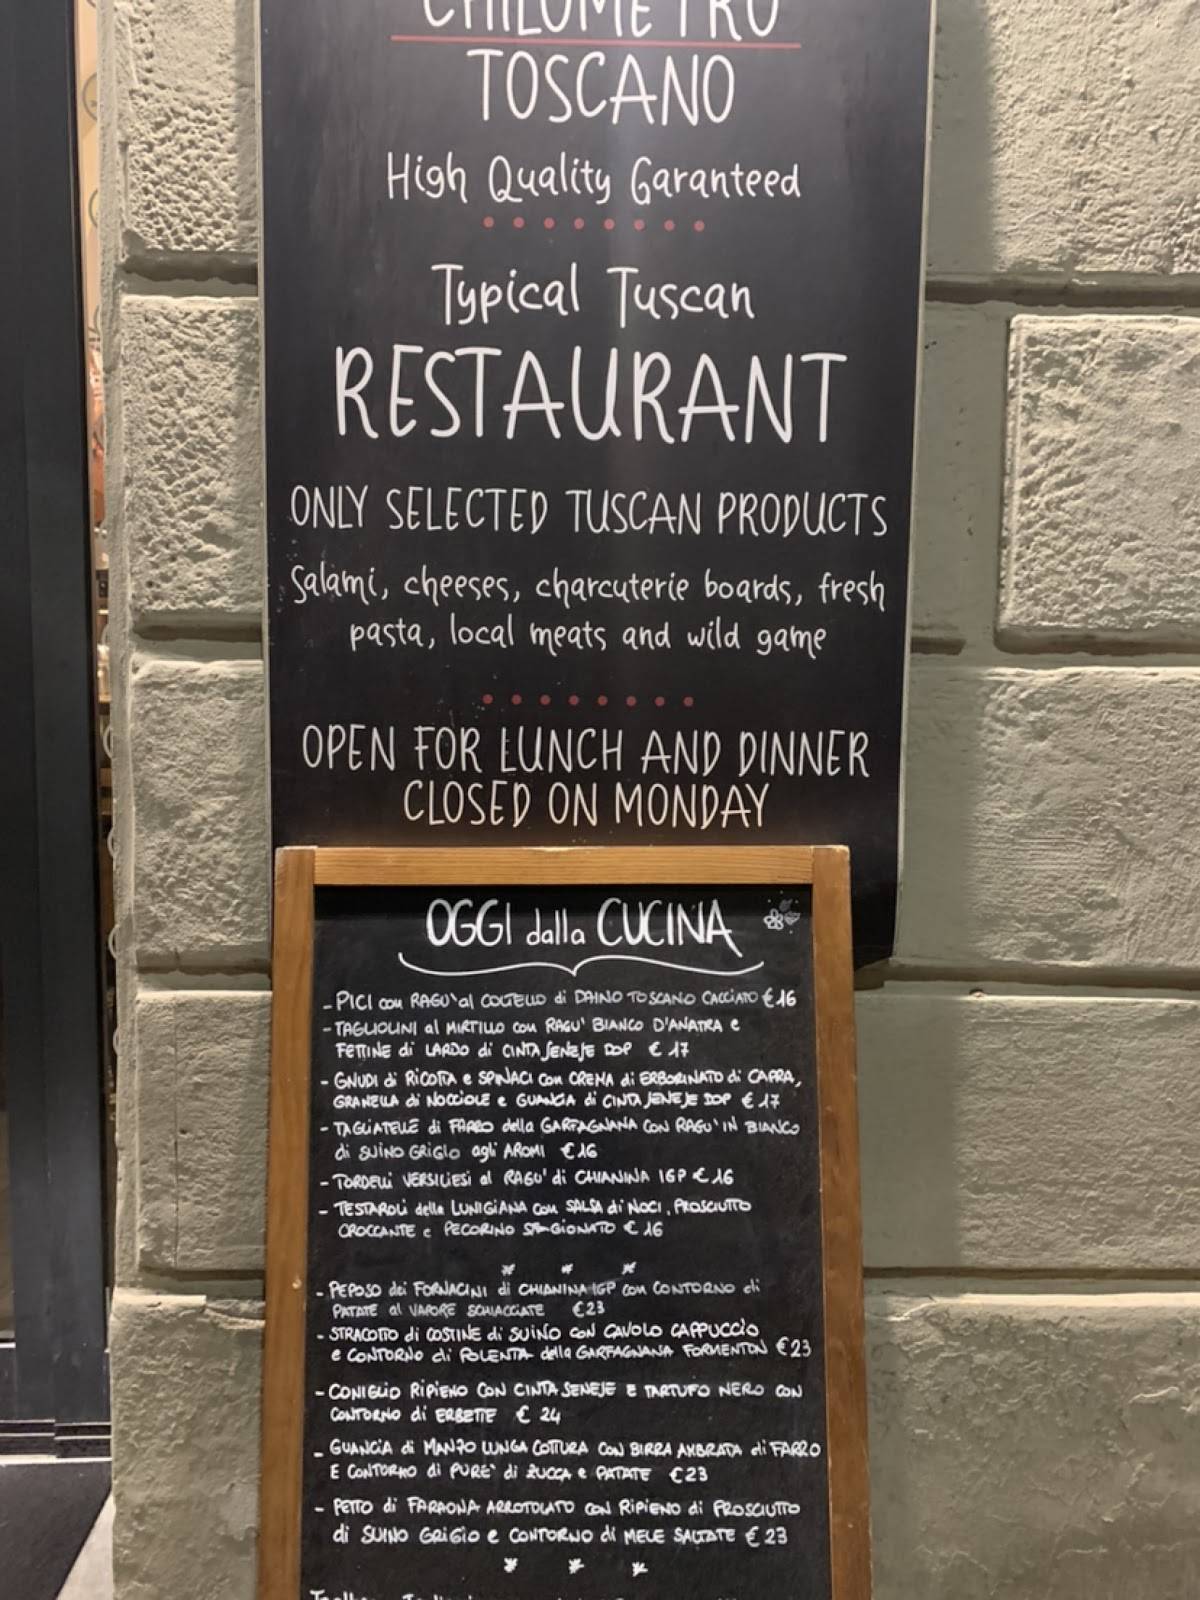 CHILOMETRO
TOSCANO
High Quality Garanteed
Typical Tuscan
RESTAURANT
ONLY SELECTED TUSCAN PRODUCTS
Salami, cheeses, charcuterie boards, fresh
pasta, local meats and wild game
OPEN FOR LUNCH AND DINNER
CLOSED ON MONDAY
OGGI dalla CUCINA
- PICI con RAGU' al COLTELLO di DAINO TOSCANO CACCIATO € 16
- TAGLIOLINI al MIRTILLO con RAGU' BIANCO D'ANATRA e
FETTINE di LARDO di CINTA SENESE DOP € 17
- GNUDI di RICOTTA e SPINACI con CREMA di ERBORINATO di CAPRA,
GRANELLA di NOCCIOLE e GUANCIA di CINTA SENESE DOP € 17
- TAGLIATELLE di FARRO della GARFAGNANA CON RAGU' IN BIANCO
di SUINO GRIGIO agli AROMI € 16
- TORDELLI VERSILIESI al RAGU' di CHIANINA IGP € 16
- TESTAROLI della LUNIGIANA con SALSA di NOCI, PROSCIUTTO
CROCCANTE e PECORINO STAGIONATO € 16
- PEPOSO dei FORNACINI di CHIANINA IGP con CONTORNO di
PATATE al VAPORE SCHIACCIATE € 23
- STRACOTTO di COSTINE di SUINO CON CAVOLO CAPPUCCIO
e CONTORNO di POLENTA della GARFAGNANA FORMENTON € 23
- CONIGLIO RIPIENO CON CINTA SENESE E TARTUFO NERO CON
CONTORNO di ERBETTE € 24
- GUANCIA di MANZO LUNGA COTTURA CON BIRRA AMBRATA di FARRO
E CONTORNO di PURE' di ZUCCA e PATATE € 23
- PETTO di FARAONA ARROTOLATO CON RIPIENO di PROSCIUTTO
di SUINO GRIGIO e CONTORNO di MELE SALTATE € 23